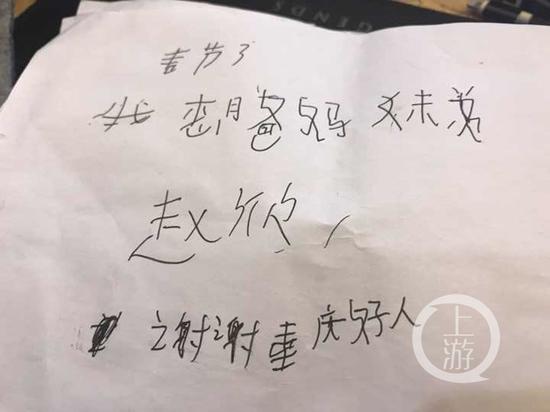 GENDS
春节了
我 想爸妈 妹
赵欣,
谢谢重庆好人
上游